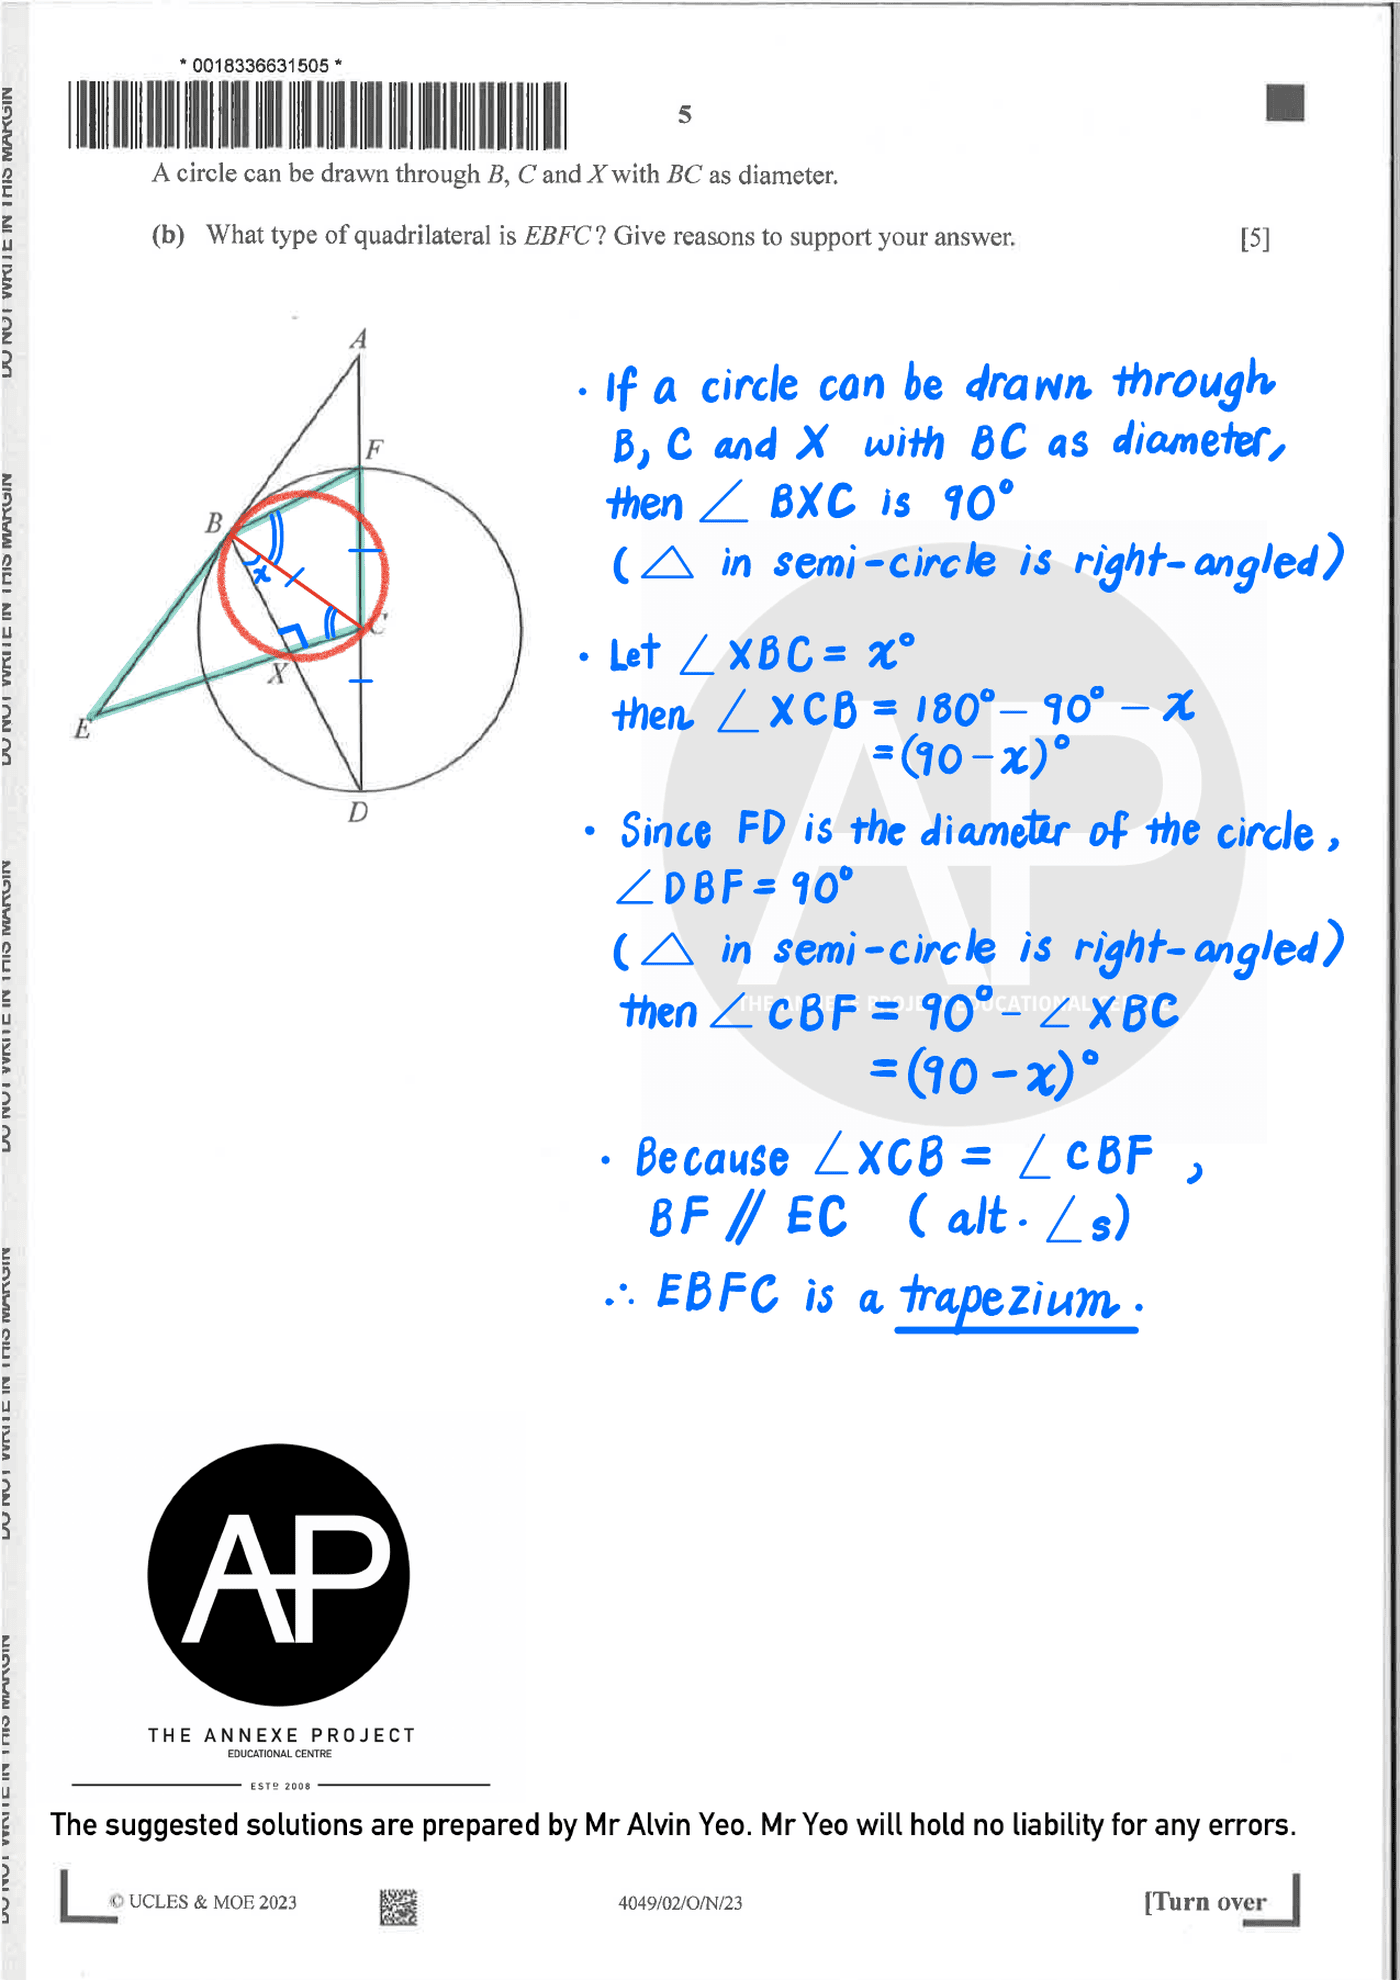 * 0018336631505 *
5
A circle can be drawn through B, C and X with BC as diameter.
(b) What type of quadrilateral is EBFC? Give reasons to support your answer. [5]
A
F
B
x
C
X
E
D
· If a circle can be drawn through
B, C and X with BC as diameter,
then ∠ BXC is 90°
(△ in semi-circle is right-angled)
· Let ∠XBC = x°
then ∠XCB = 180° – 90° – x
= (90 – x)°
· Since FD is the diameter of the circle,
∠DBF = 90°
(△ in semi-circle is right-angled)
then ∠CBF = 90° – ∠XBC
= (90 – x)°
· Because ∠XCB = ∠CBF,
BF // EC (alt. ∠s)
∴ EBFC is a trapezium.
AP
THE ANNEXE PROJECT
EDUCATIONAL CENTRE
ESTD 2008
The suggested solutions are prepared by Mr Alvin Yeo. Mr Yeo will hold no liability for any errors.
© UCLES & MOE 2023
4049/02/O/N/23
[Turn over
DO NOT WRITE IN THIS MARGIN
DO NOT WRITE IN THIS MARGIN
DO NOT WRITE IN THIS MARGIN
DO NOT WRITE IN THIS MARGIN
DO NOT WRITE IN THIS MARGIN